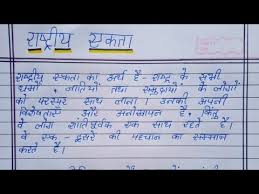 राष्ट्रीय एकता
राष्ट्रीय एकता का अर्थ है - राष्ट्र के सभी
धर्मों, जातियों तथा समुदायों के लोगों
को परस्पर साथ लाना। उनकी अपनी
विशेषताएं और अनोखापन है, किन्तु
वे लोग शांतिपूर्वक एक साथ रहते हैं।
वे एक - दूसरे की पहचान का सम्मान
करते हैं।